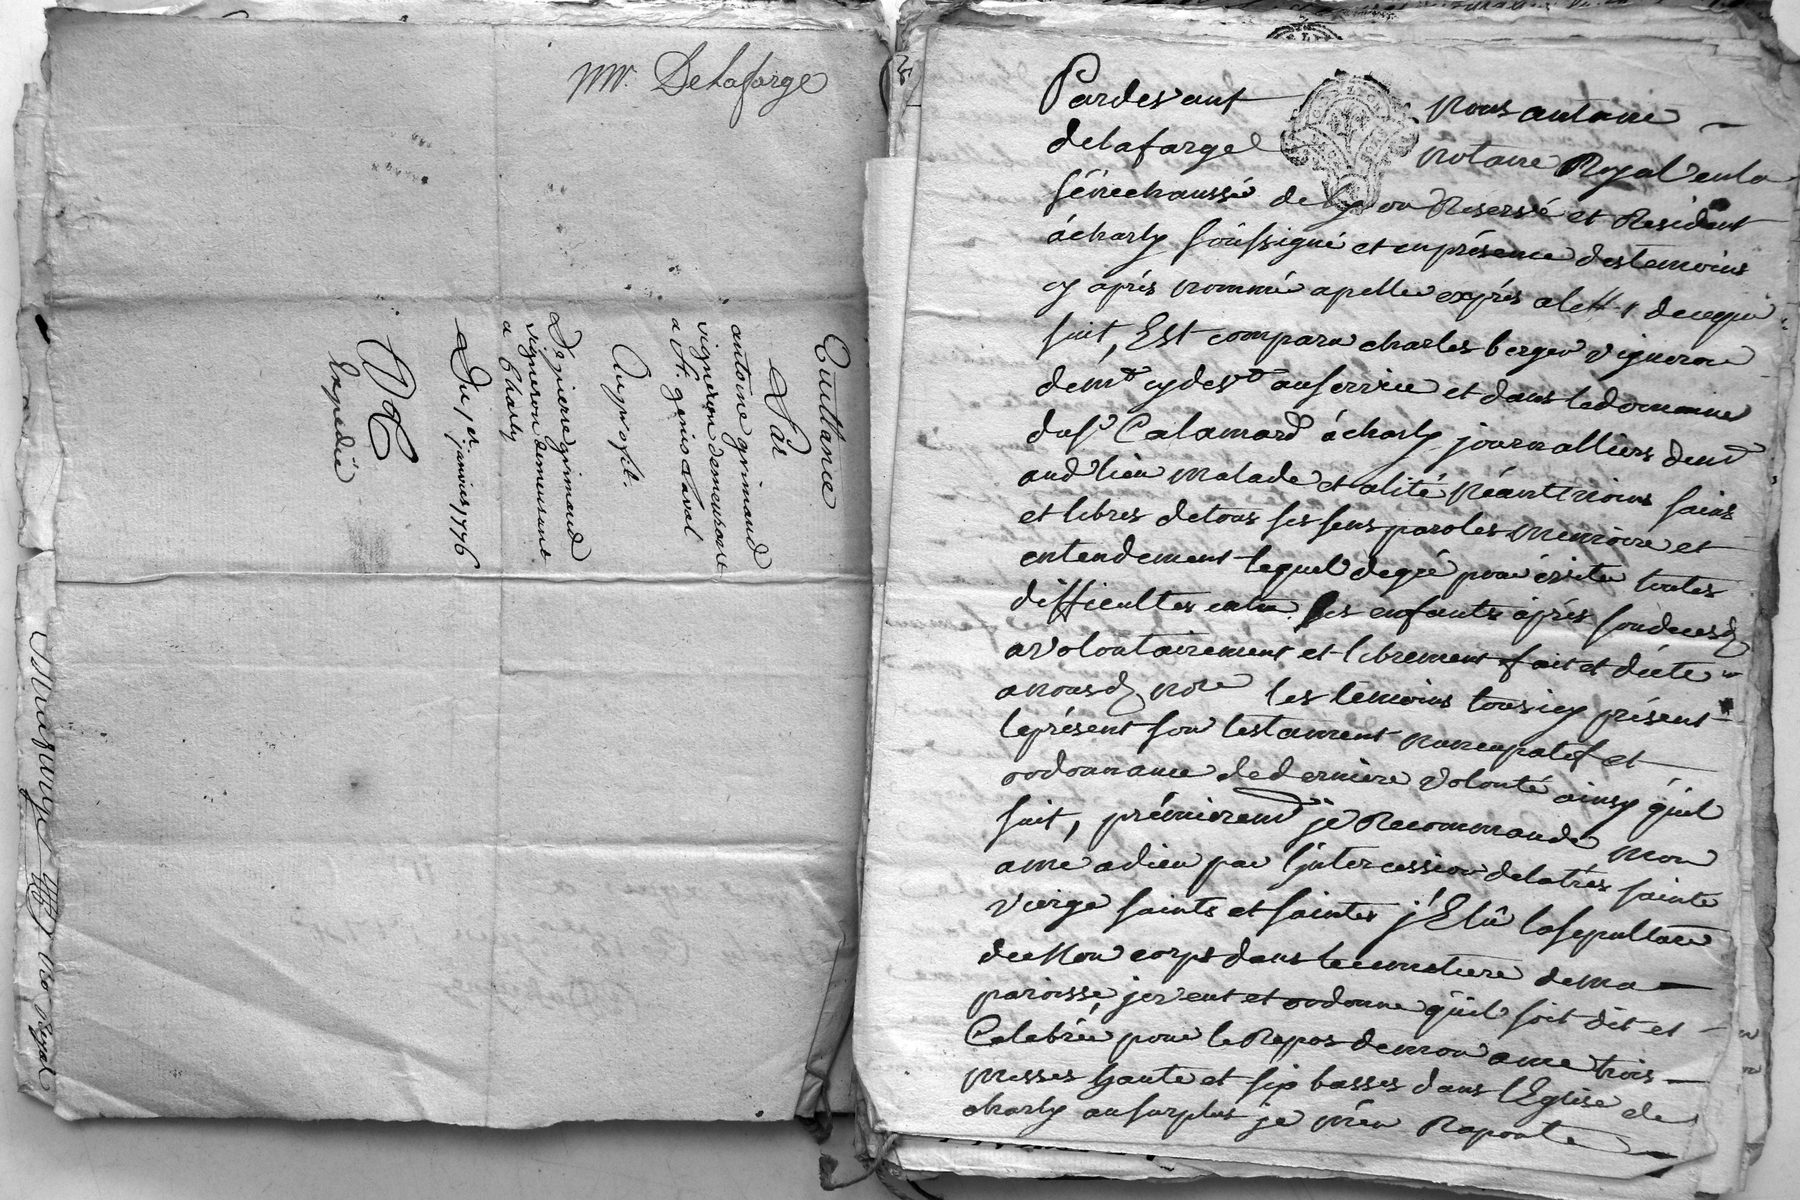 Mr. Delafarge
Quittance
Par
antoine grimaud
vigneron demeurant
a St. genis Laval
Au profit.
De pierre grimaud
vigneron demeurant
a Charly
Du 1er. janvier 1776
Expedié
Pardevant nous antoine
delafarge notaire Royal en la
sénéchaussé de Lyon Réservé et Résident
à charly soussigné et en présence des temoins
cy aprés nommé apellé exprés a l'effet de ce qui
suit, Est comparu charles berger vigneron
demt cy devt au service et dans le domaine
du sr Calamard à charly journalliers demt
aud lieu malade et alité néantmoins sains
et libres de tous ses sens paroles memoire et
entendement lequel de gré pour éviter toutes
difficultes entre ses enfants aprés son deces
a volontairement et librement fait et dicté
a nousd. nore les temoins tous icy présent
le présent son testament nuncupatif et
ordonnance de derniere volonté ainsy quil
suit, prémierent je Recommande mon
ame a dieu par l'jntercession de la trés sainte
vierge saints et saintes j'Elû la sepulture
de mon corps dans le cimetiere de ma
paroisse, je veut et ordonne qu'il soit dit et
Celebrée pour le Repos de mon ame trois
messes haute et six basses dans l'Eglise de
charly au surplus je m'en Raporte